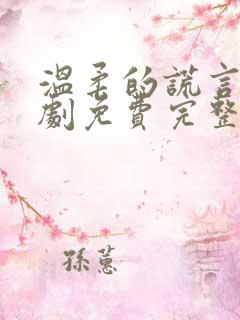 溫柔的謊言
劇免費完整
孫蕙